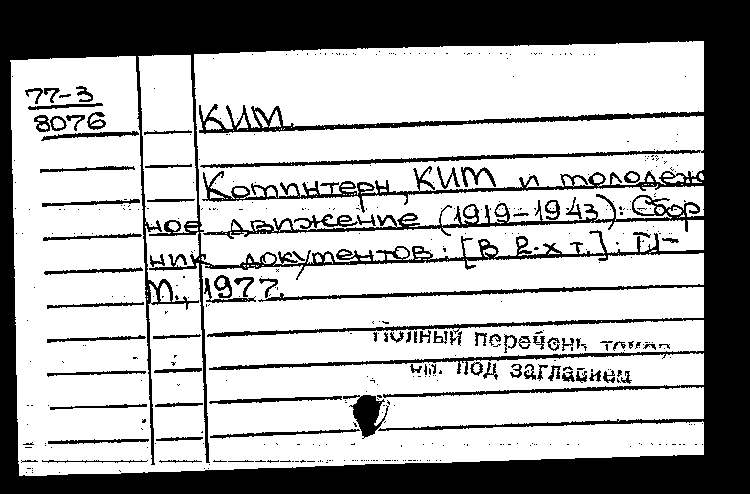 77-3
8076
КИМ.
Коминтерн, КИМ и молодеж
ное движение (1919-1943): Сбор
ник документов: [В 2-х т.]. Т.1-
М., 1977.
Полный перечень томов
см. под заглавием